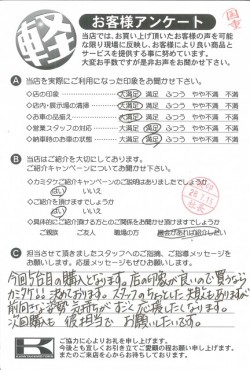 軽
お客様アンケート
当店では、お買い上げ頂いたお客様の声を可能
な限り現場に反映し、お客様により良い商品と
サービスを提供する事に努めています。
大変お手数ですが是非お声をお聞かせ下さい。
A 当店を実際にご利用になった印象をお聞かせ下さい。
◇店の印象 大満足 満足 ふつう やや不満 不満
◇店内・展示場の清掃 大満足 満足 ふつう やや不満 不満
◇お車の品揃え 大満足 満足 ふつう やや不満 不満
◇営業スタッフの対応 大満足 満足 ふつう やや不満 不満
◇納車時のお車の状態 大満足 満足 ふつう やや不満 不満
B 当店はご紹介を大切にしております。
ご紹介キャンペーンについてお聞かせ下さい。
◇カミタケご紹介キャンペーンのご説明はありましたでしょうか
はい いいえ
◇ご紹介を頂けますでしょうか
はい いいえ
◇具体的にご紹介頂ける方とのご関係をお聞かせ頂けますでしょうか
ご親族 ご友人 職場の方 機会があれば紹介したい
C 担当させて頂きましたスタッフへのご指摘、ご指導メッセージを
お願いします。応援メッセージもぜひお願いします。
今回5台目の購入となります。店の印象が良いので買うなら
カミタケ!!と決めております。スタッフの
前向きな姿勢、気持ちが 応援したくなります。
次回購入も 彼担当で お願いいたします。
K
ご協力に心よりお礼を申し上げます。
今後とも宜しくお引き立てご愛顧の程お願い申し上げます。
またのご来店を心からお待ちしております。